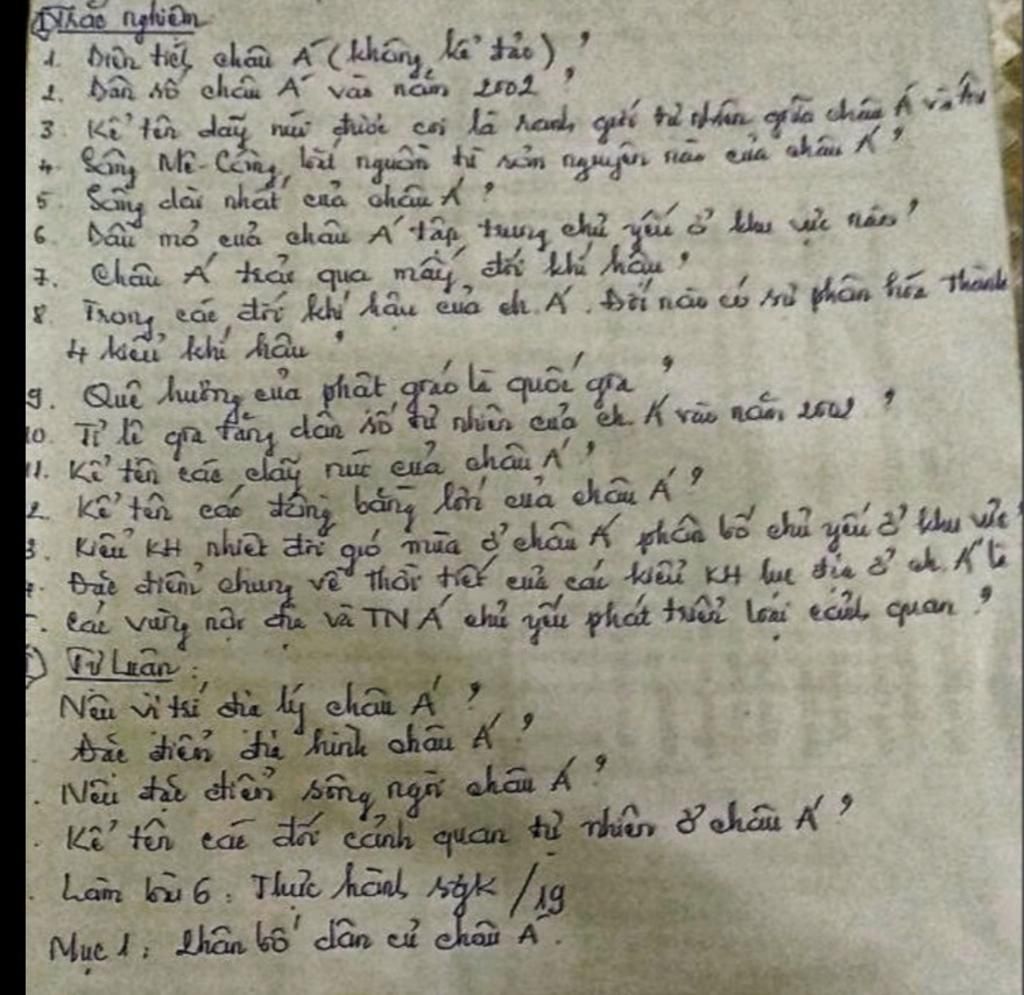 I) Trắc nghiệm
1. Diện tích châu Á (không kể đảo) ?
2. Dân số châu Á vào năm 2002 ?
3. Kể tên dãy núi được coi là ranh giới tự nhiên giữa châu Á và Âu
4. Sông Mê-Công bắt nguồn từ sơn nguyên nào của châu Á ?
5. Sông dài nhất của châu Á ?
6. Dầu mỏ của châu Á tập trung chủ yếu ở khu vực nào ?
7. Châu Á trải qua mấy đới khí hậu ?
8. Trong các đới khí hậu của ch. Á. Đới nào có sự phân hóa thành
4 kiểu khí hậu ?
9. Quê hương của phật giáo là quốc gia ?
10. Tỉ lệ gia tăng dân số tự nhiên của ch. Á vào năm 2002 ?
11. Kể tên các dãy núi của châu Á ?
2. Kể tên các đồng bằng lớn của châu Á ?
3. Kiểu KH nhiệt đới gió mùa ở châu Á phân bố chủ yếu ở khu vực
4. Đặc điểm chung về thời tiết của các kiểu KH lục địa ở ch. Á là
5. Các vùng nội địa và TN Á chủ yếu phát triển loại cảnh quan ?
) Tự Luận :
Nêu vị trí địa lý châu Á ?
. Đặc điểm địa hình châu Á ?
. Nêu đặc điểm sông ngòi châu Á ?
. Kể tên các đới cảnh quan tự nhiên ở châu Á ?
. Làm bài 6 : Thực hành sgk / 19
Mục 1 : Phân bố dân cư châu Á.